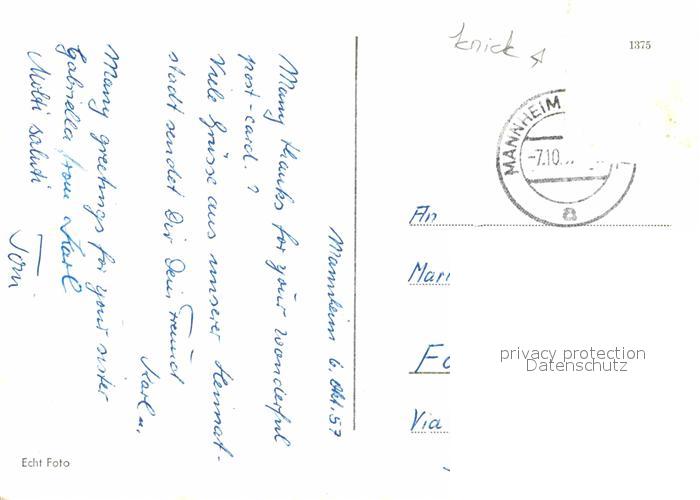 Mannheim 6. Okt. 57
Many thanks for your wonderful
post-card. ?
Viele Grüsse aus unserer Heimat-
stadt sendet Dir Dein Freund
Karl u.
Many greetings for your sister
Gabriella from Karl
Molti saluti
Toni
Echt Foto
knick
1375
MANNHEIM
-7.10.
a
An
Mari
Fo
Via
privacy protection
Datenschutz